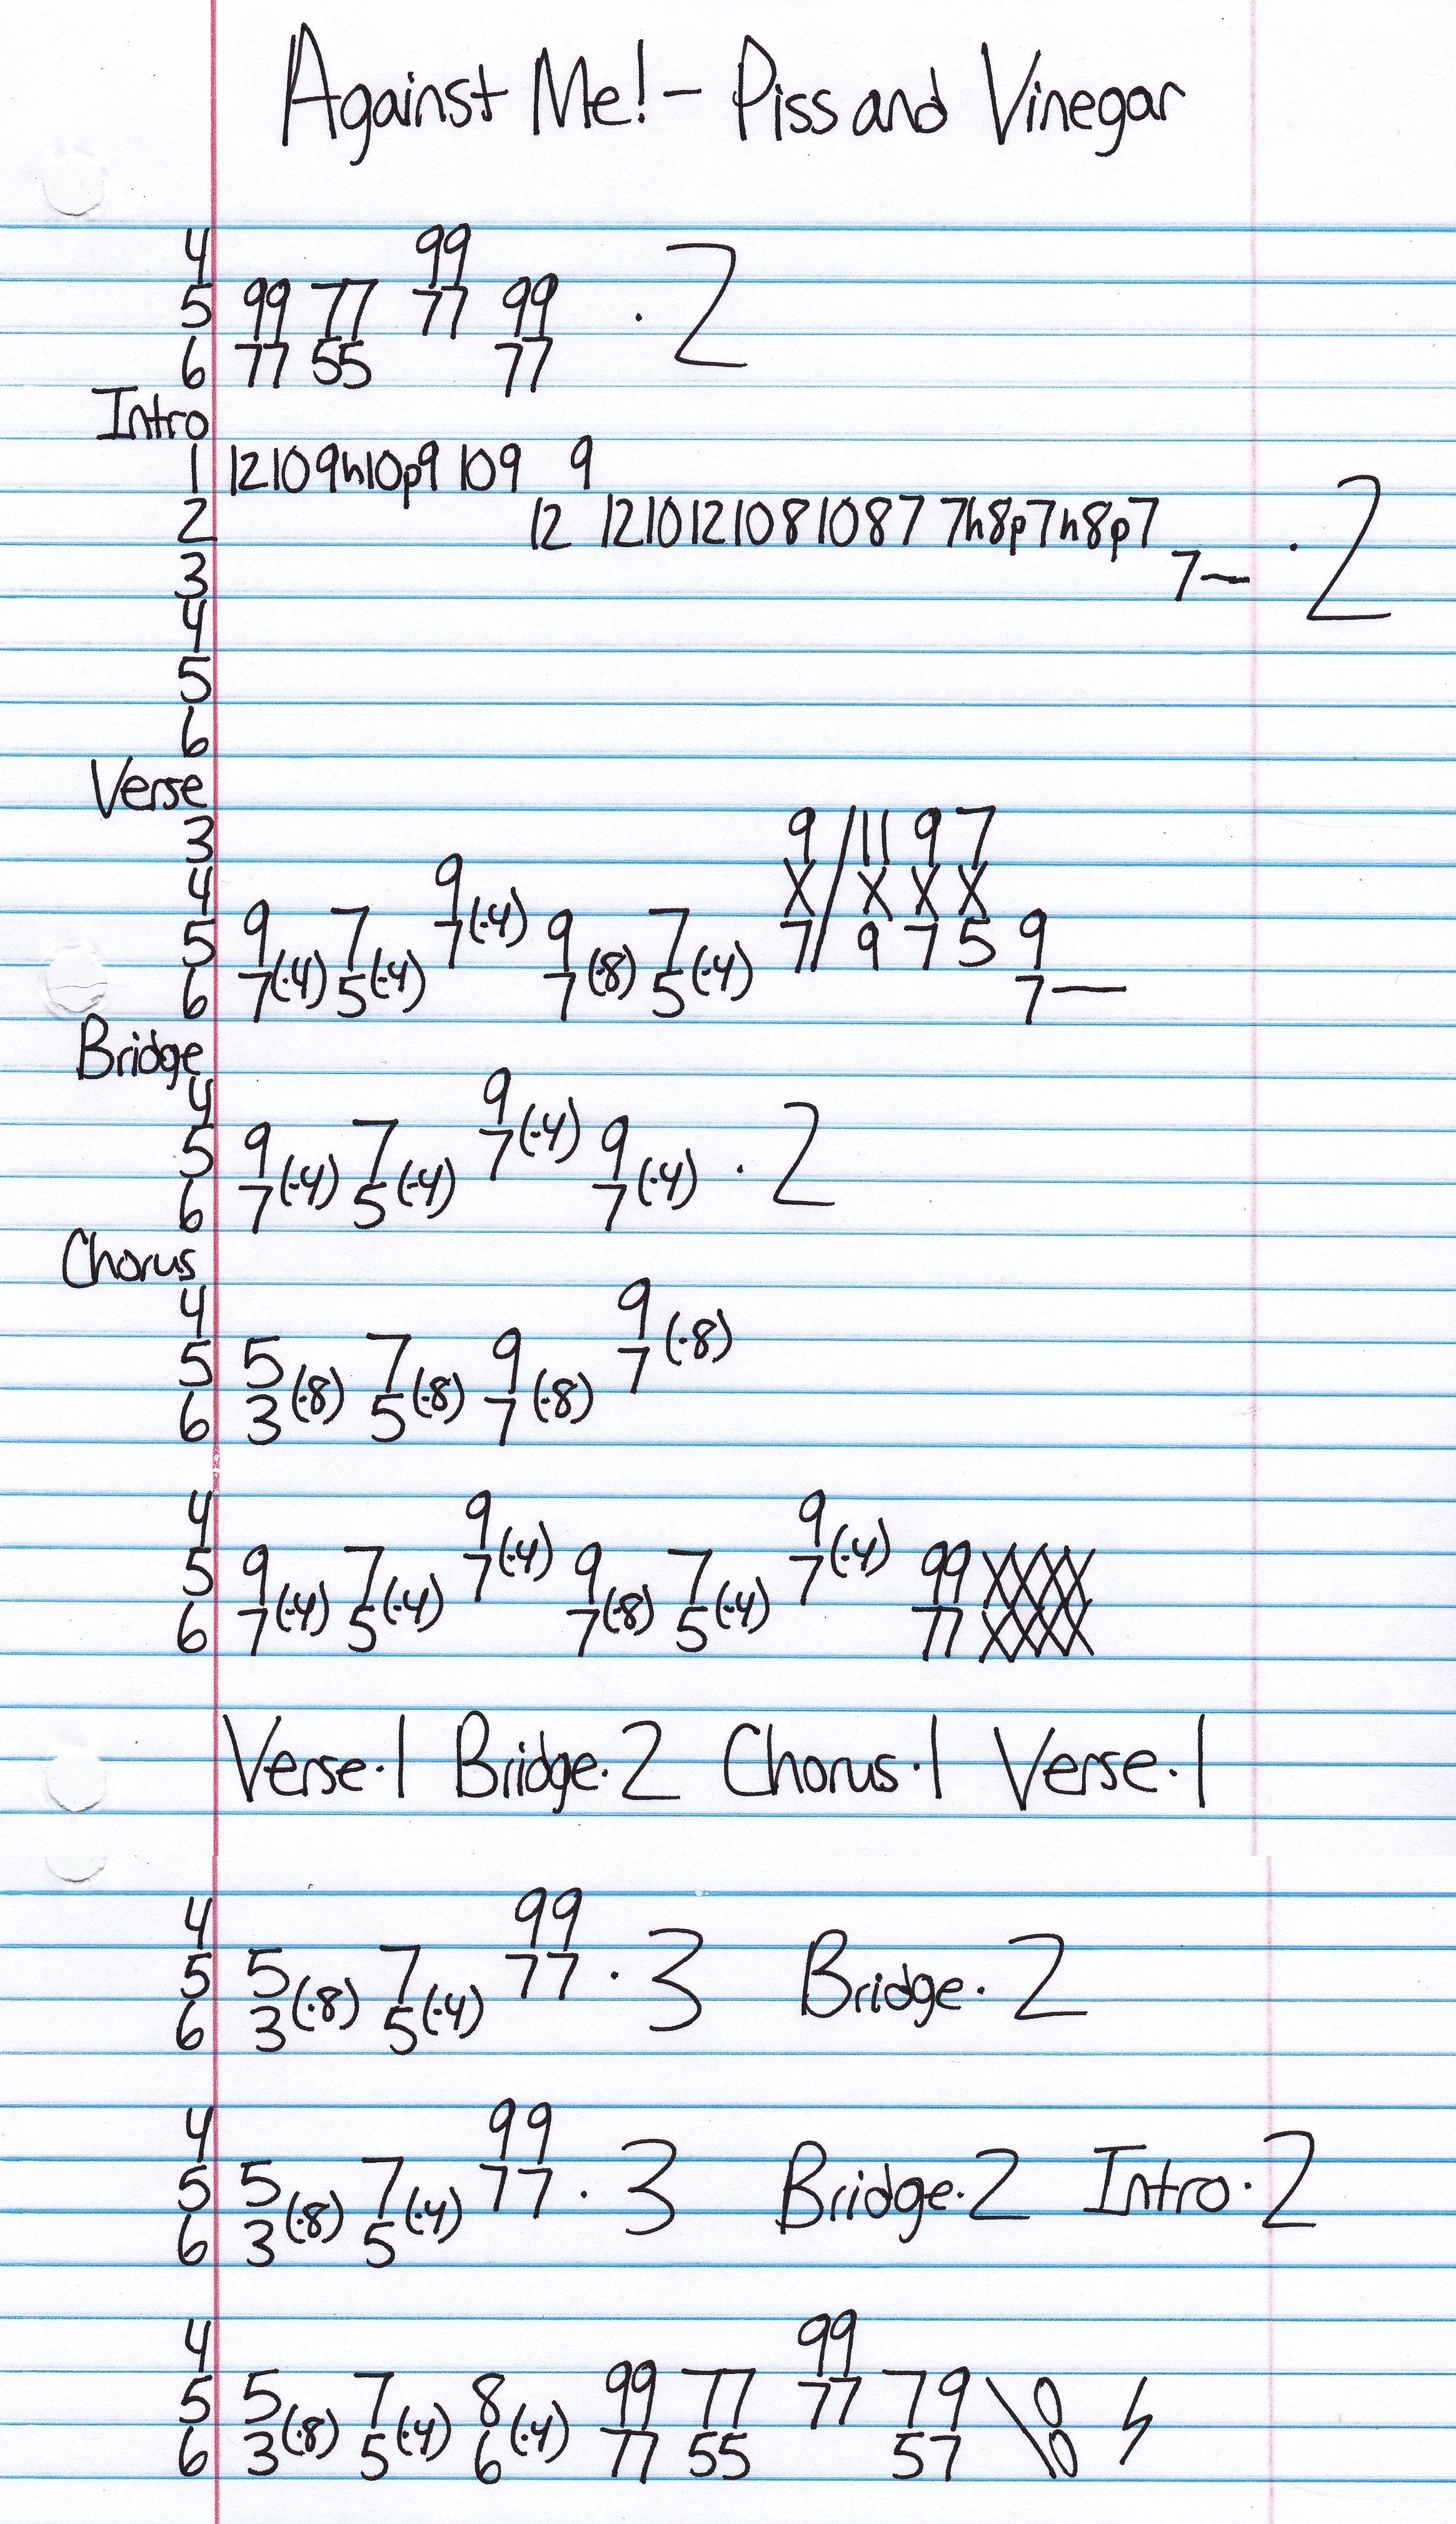 Against Me! - Piss and Vinegar
4 99
5 99 77 77 99 · 2
6 77 55 77
Intro
1 12 10 9h10p9 10 9 9
2 12 12 10 12 10 8 10 8 7 7h8p7h8p7
3 7— · 2
4
5
6
Verse
3 9 / 11 9 7
4 9 X / X X X
5 9 7 7(·4) 9 7 7 / 9 7 5 9
6 7(·4) 5(·4) 7(·8) 5(·4) 7—
Bridge
4 9
5 9 7 7(·4) 9 · 2
6 7(·4) 5(·4) 7(·4)
Chorus
4 9
5 5 7 9 7(·8)
6 3(·8) 5(·8) 7(·8)
4 9 9
5 9 7 7(·4) 9 7 7(·4) 99 XXXX
6 7(·4) 5(·4) 7(·8) 5(·4) 77 XXXX
Verse·1 Bridge·2 Chorus·1 Verse·1
4 99
5 5 7 77 · 3 Bridge·2
6 3(·8) 5(·4)
4 99
5 5 7 77 · 3 Bridge·2 Intro·2
6 3(·8) 5(·4)
4 99
5 5 7 8 99 77 77 79 \0
6 3(·8) 5(·4) 6(·4) 77 55 57 \0